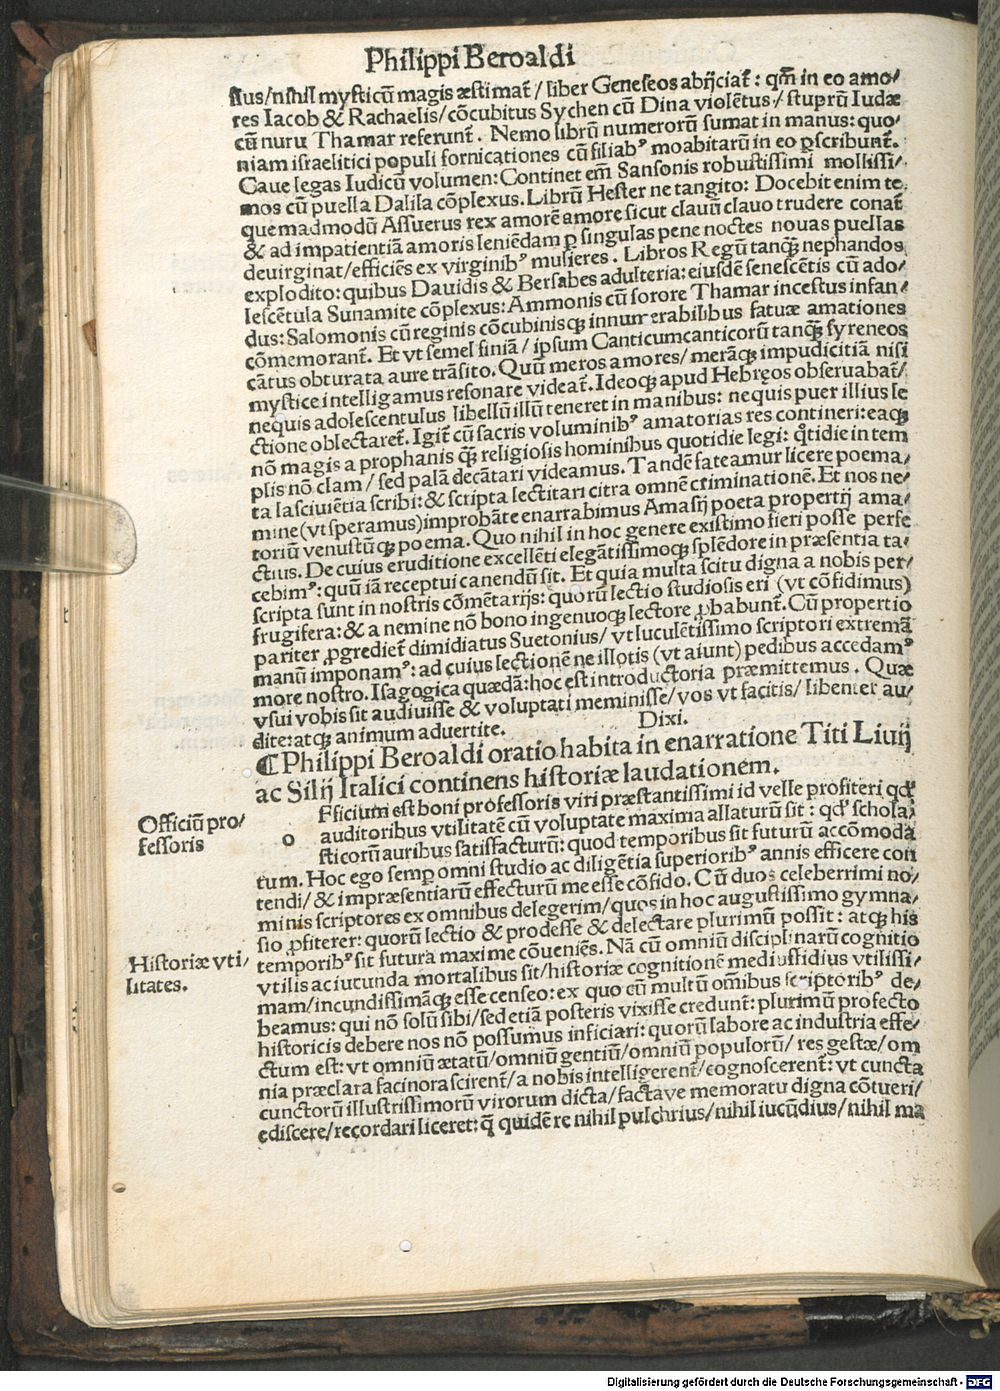 Philippi Beroaldi
ſius/nihil myſticū magis æſtimat᷑/liber Geneſeos abijciat᷑: qm̄ in eo amo/
res Iacob & Rachaelis/cōcubitus Sychen cū Dina violētus/ſtuprū Iudæ
cū nuru Thamar referunt᷑. Nemo librū numerorū ſumat in manus: quo/
niam iſraelitici populi fornicationes cū filiabꝰ moabitarū in eo ꝑſcribunt᷑.
Caue legas Iudicū volumen: Continet em̄ Sanſonis robuſtiſſimi molliſſi/
mos cū puella Dalila cōplexus. Librū Heſter ne tangito: Docebit enim te
quemadmodū Aſſuerus rex amorē amore ſicut clauū clauo trudere conat᷑
& ad impatientiā amoris leniēdam ꝑ ſingulas pene noctes nouas puellas
deuirginat/efficiēs ex virginibꝰ mulieres. Libros Regū tanqꝫ nephandos
explodito: quibus Dauidis & Berſabes adulteria: eiuſdē ſeneſcētis cū ado/
leſcētula Sunamite cōplexus: Ammonis cū ſorore Thamar inceſtus infan/
dus: Salomonis cū reginis cōcubinisqꝫ innumerabilibus fatuæ amationes
cōmemorant᷑. Et vt ſemel finiā/ipſum Canticumcanticorū tanqꝫ ſyreneos
cātus obturata aure trāſito. Quū meros amores/merāqꝫ impudicitiā niſi
myſtice intelligamus reſonare videat᷑. Ideoqꝫ apud Hebręos obſeruabat᷑/
nequis adoleſcentulus libellū illū teneret in manibus: nequis puer illius le
ctione oblectaret᷑. Igit᷑ cū ſacris voluminibꝰ amatorias res contineri: eaqꝫ
nō magis a prophanis qꝫ religioſis hominibus quotidie legi: qͦtidie in tem
plis nō clam/ſed palā decātari videamus. Tandē fateamur licere poema/
ta laſciuiētia ſcribi: & ſcripta lectitari citra omnē criminationē. Et nos ne/
mine (vt ſperamus) improbāte enarrabimus Amaſij poeta propertij ama/
toriū venuſtūqꝫ poema. Quo nihil in hoc genere exiſtimo fieri poſſe perfe
ctius. De cuius eruditione excellēti elegātiſſimoqꝫ ſplēdore in præſentia ta/
cebimꝰ: quū iā receptui canendū ſit. Et quia multa ſcitu digna a nobis per/
ſcripta ſunt in noſtris cōmētarijs: quorū lectio ſtudioſis eri (vt cōfidimus)
frugifera: & a nemine nō bono ingenuoqꝫ lectore ꝓbabunt᷑. Cū propertio
pariter ꝓgrediet᷑ dimidiatus Suetonius/vt luculētiſſimo ſcriptori extremā
manū imponamꝰ: ad cuius lectionē ne illotis (vt aiunt) pedibus accedamꝰ
more noſtro. Iſagogica quædā: hoc eſt introductoria præmittemus. Quæ
vſui vobis ſit audiuiſſe & voluptati meminiſſe/vos vt facitis/libenter au/
dite: atqꝫ animum aduertite. Dixi.
⁋ Philippi Beroaldi oratio habita in enarratione Titi Liuij
ac Silij Italici continens hiſtoriæ laudationem.
Officiū pro/
feſſoris
o Fficium eſt boni profeſſoris viri præſtantiſſimi id velle profiteri qd᷑
auditoribus vtilitatē cū voluptate maxima allaturū ſit: qd᷑ ſchola/
ſticorū auribus ſatiſfacturū: quod temporibus ſit futurū accōmoda
tum. Hoc ego ſemꝑ omni ſtudio ac diligētia ſuperioribꝰ annis efficere con
tendi/& impræſentiarū effecturū me eſſe cōfido. Cū duos celeberrimi no/
minis ſcriptores ex omnibus delegerim/quos in hoc auguſtiſſimo gymna/
ſio ꝓfiterer: quorū lectio & prodeſſe & delectare plurimū poſſit: atqꝫ his
temporibꝰ ſit futura maxime cōueniēs. Nā cū omniū diſciplinarū cognitio
Hiſtoriæ vti/
litates.
vtilis ac iucunda mortalibus ſit/hiſtoriæ cognitionē mediuſfidius vtiliſſi/
mam/iucundiſſimāqꝫ eſſe cenſeo: ex quo cū multū om̄ibus ſcriptoribꝰ de/
beamus: qui nō ſolū ſibi/ſed etiā poſteris vixiſſe credunt᷑: plurimū profecto
hiſtoricis debere nos nō poſſumus inficiari: quorū labore ac induſtria effe/
ctum eſt: vt omniū ætatū/omniū gentiū/omniū populorū/res geſtæ/om
nia præclara facinora ſcirent᷑/a nobis intelligerent᷑/cognoſcerent᷑: vt cuncta
cunctorū illuſtriſſimorū virorum dicta/factave memoratu digna cōtueri/
ediſcere/recordari liceret: q̄ quidē re nihil pulchrius/nihil iucūdius/nihil ma
Digitalisierung gefördert durch die Deutsche Forschungsgemeinschaft - DFG